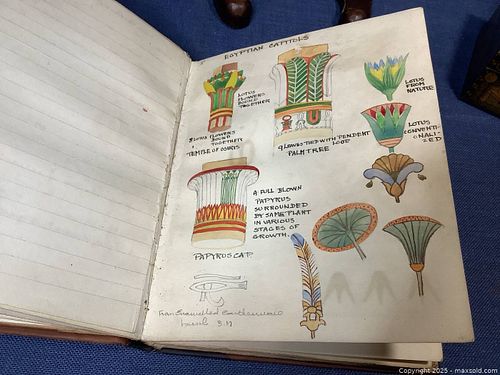 EGYPTIAN CAPITOLS
LOTUS
FLOWERS
BOUND
TOGETHER
LOTUS FLOWERS
BOUND
TOGETHER
TEMPLE OF OSIRIS
9 LEAVES TIED WITH PENDENT
LOOP
PALM TREE
LOTUS
FROM
NATURE
LOTUS
CONVENTI-
ONALIZ
ED
A FULL BLOWN
PAPYRUS
SURROUNDED
BY SAME PLANT
IN VARIOUS
STAGES OF
GROWTH.
PAPYRUS CAP.
From Enamelled Earthenware
Copyright 2025 - maxsold.com